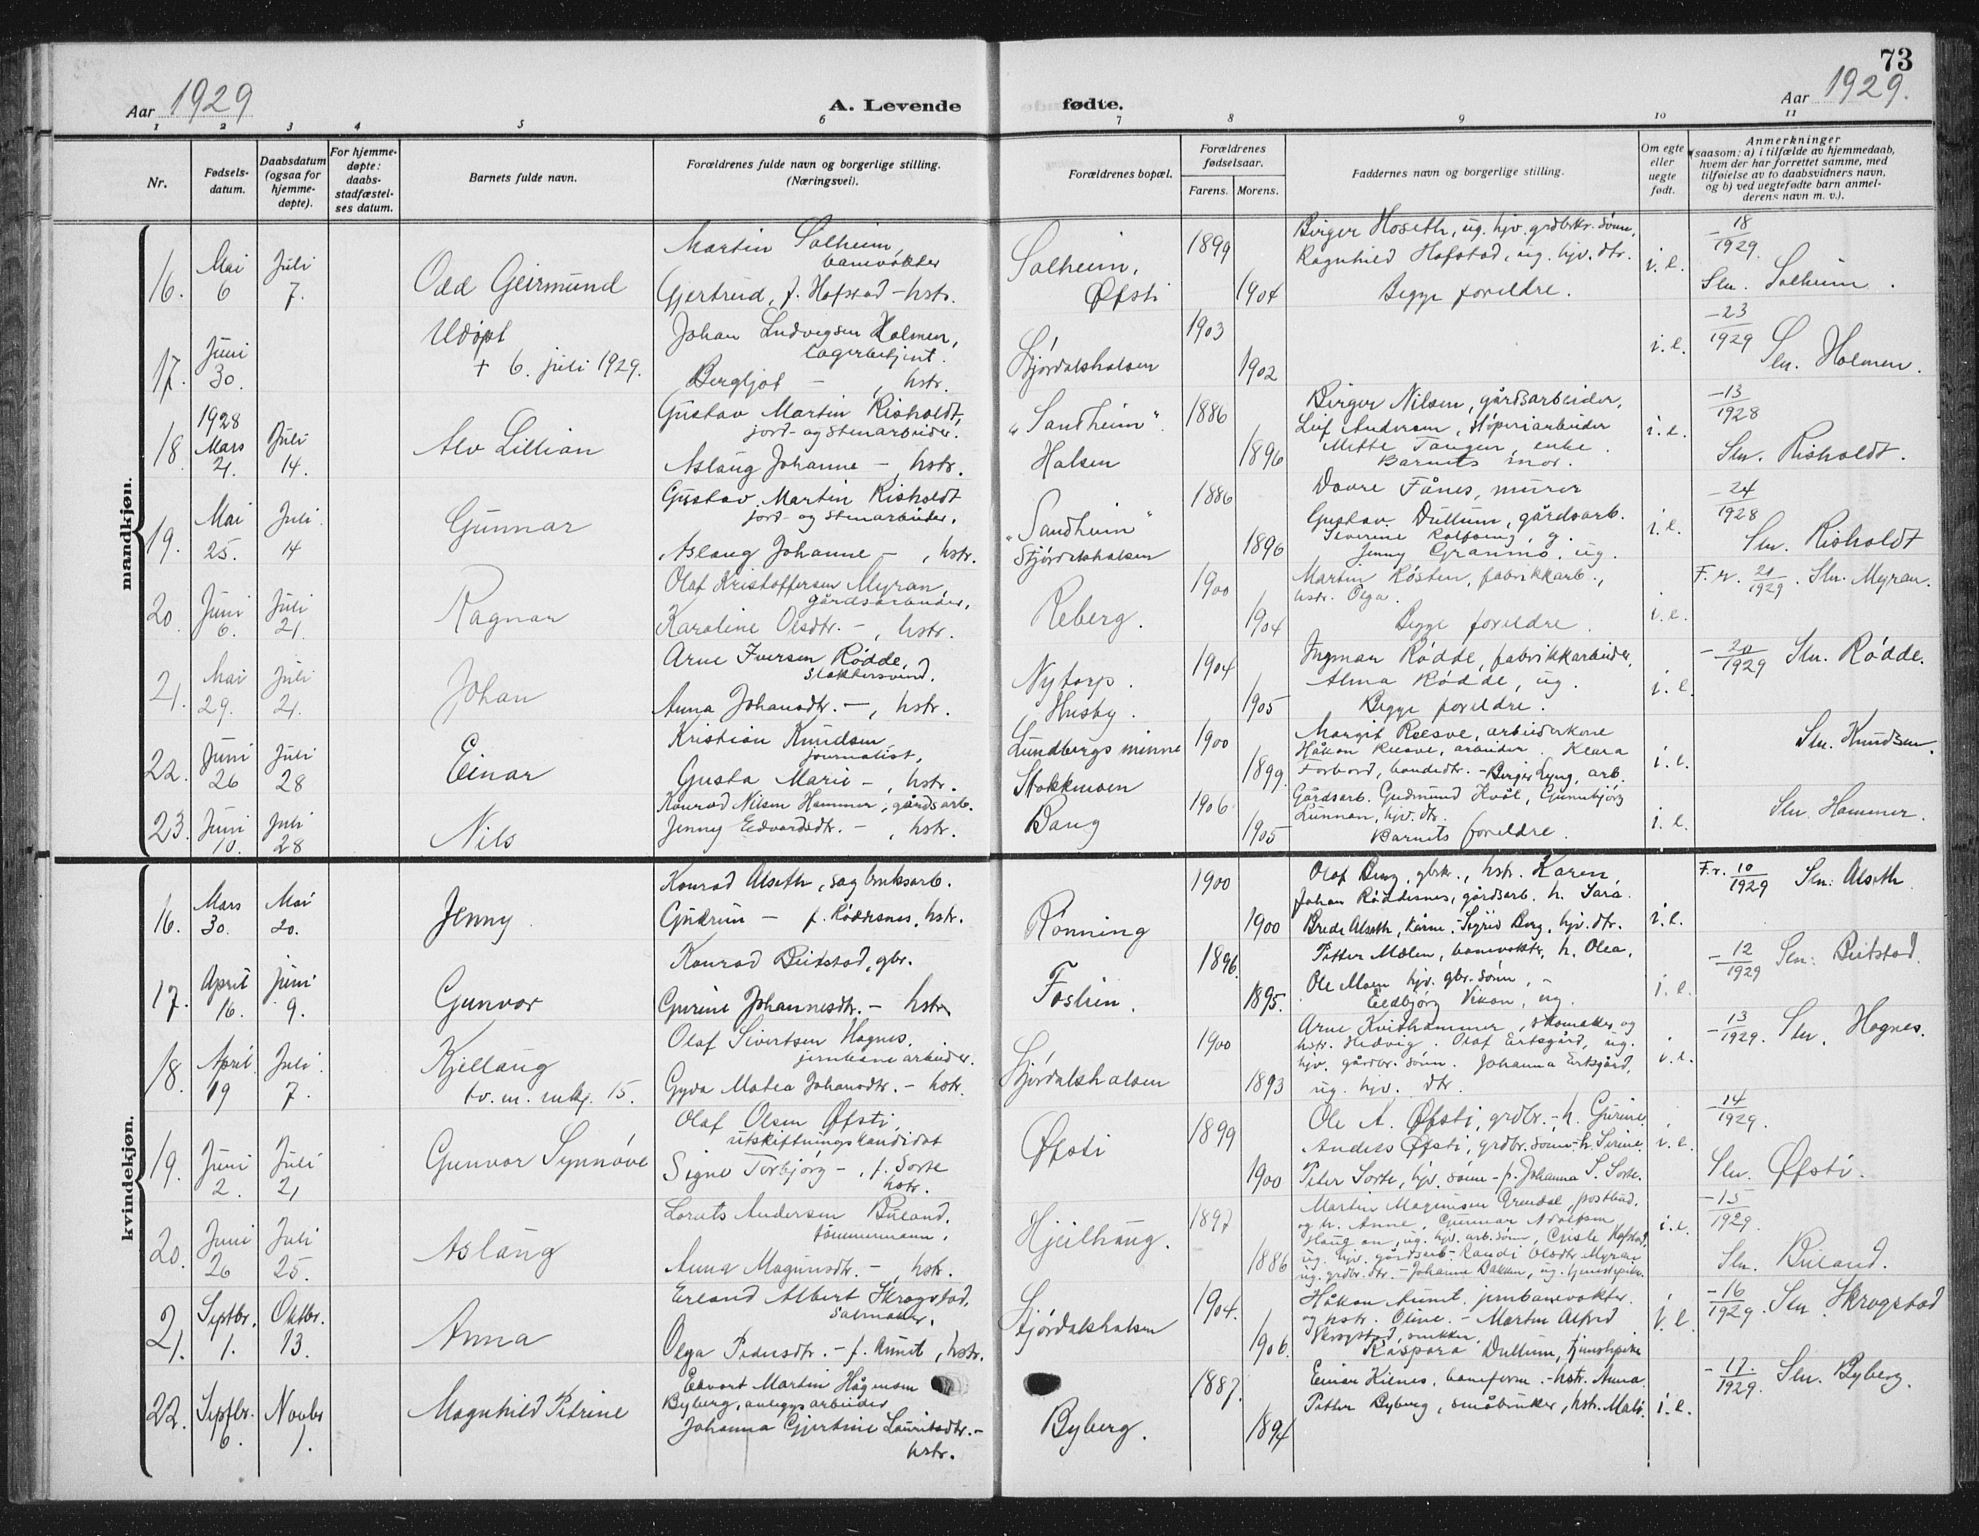 73
Aar 1929
A. Levende fødte.
Aar 1929.
1 2 3 4 5 6 7 8 9 10 11
Nr.
Fødsels-
datum.
Daabsdatum
(ogsaa for
hjemme-
døpte).
For hjemme-
døpte:
daabs-
stadfæstel-
ses datum.
Barnets fulde navn.
Forældrenes fulde navn og borgerlige stilling.
(Næringsvei).
Forældrenes bopæl.
Forældrenes
fødselsaar.
Farens. Morens.
Faddernes navn og borgerlige stilling.
Om egte
eller
uegte
født.
Anmerkninger
(saasom: a) i tilfælde av hjemmedaab,
hvem der har forrettet samme, med
tilføielse av to daabsvidners navn,
og b) ved uegtefødte barn anmel-
derens navn m. v.).
mandkjøn.
16.
Mai
6
Juli
7.
Odd Geirmund
Martin Solheim,
banevokter
Gjertrud, f. Hofstad - hstr.
Solheim,
Øfsti
1899
1904
Birger Hoseth, ug. hjv. grdbrkr. sønn,
Ragnhild Hofstad, ug. hjv. dtr.
Begge foreldre.
i. e.
- 18
1929
Sln. Solheim.
17.
Juni
30.
Udøpt
+ 6. juli 1929.
Johan Ludvigsen Holmen,
lagerbetjent.
Bergljot - , hstr.
Stjørdalshalsen
1903
1902
i. e.
- 23
1929
Sln. Holmen.
18.
1928
Mars
21.
Juli
14.
Alv Lillian
Gustav Martin Risholdt,
jord- og stenarbeider.
Aslaug Johanne - , hstr.
"Sandheim".
Halsen
1886
1896
Birger Nilsen, gårdsarbeider,
Leif Andersen, støperiarbeider
Mette Tangen, enke.
Barnets mor.
i. e.
- 13
1928
Sln. Risholdt.
19.
Mai
25.
Juli
14
Gunnar
Gustav Martin Risholdt
jord- og stenarbeider.
Aslaug Johanne - , hstr.
"Sandheim"
Stjørdalshalsen
1886
1896
Dovre Fånes, murer
Gustav Dullum, gårdsarb.
Jenny Granmo, ug.
i. e.
- 24
1928
Sln. Risholdt
20.
Juni
6.
Juli
21.
Ragnar
Olaf Kristoffersen Myran,
gårdsarbeider,
Karoline Olsdtr. - , hstr.
Reberg.
1900
1904
Martin Røsten, fabrikkarb.,
hstr. Olga.
Begge foreldre.
i. e.
F. r. 21
1929. Sln. Myran.
21.
Mai
29.
Juli
21.
Johan
Arne Iversen Rødde,
slaktersvend.
Anna Johansdtr. - , hstr.
Nytorp.
Husby.
1904
1905
Ingman Rødde, fabrikkarbeider,
Alma Rødde, ug.
Begge foreldre.
i. e.
- 20
1929 Sln. Rødde.
22.
Juni
26
Juli
28
Einar
Kristian Knudsen
journalist,
Gusta Marie - , hstr.
Lundbergs minne
Stokkmoen
1900
1899
Margit Reesve, arbeiderkone
Håkon Reesve, arbeider. Klara
Forbord, bondedtr. - Birger Lyng, arb.
i. e.
Sln. Knudsen.
23.
Juni
10.
Juli
28
Nils
Konrad Nilsen Hammer, gårdsarb.
Jenny Edvardsdtr. - , hstr.
Bang
1906
1905
Gårdsarb. Gudmund Kvål, Gunnbjørg
Lunnan, hjv. dtr.
Barnets foreldre.
i. e.
Sln. Hammer.
kvindekjøn.
16.
Mars
30.
Mai
20.
Jenny
Konrad Alseth, sagbruksarb.
Gudrun - f. Røddesnes, hstr.
Rønning
1900
1900
Olaf Berg, gbrkr., hstr. Karen,
Johan Røddesnes, gårdsarb. h. Sara.
Brede Alseth, Kårne. - Sigrid Berg, hjv. dtr.
i. e.
F. r. 10
1929 Sln. Alseth.
17.
April
16.
juni
9.
Gunvor
Konrad Beitstad, gbr.
Gurine Johannesdtr. - hstr.
Foslien.
1896.
1895.
Petter Mælen, banevokter, h. Olea,
Ole Moen hjv. gbr. sønn, -
Eldbjørg Vikan, ug.
i. e.
- 12
1929 Sln. Beitstad.
18.
April
19
Juli
7.
Kjellaug
tv. m. mkj. 15.
Olaf Sivertsen Hognes,
jernbanearbeider.
Gyda Matea Johansdtr. - hstr.
Stjørdalshalsen
1900
1893
Arne Kvithammer, skomaker og
hstr. Hedvig. Olaf Ertsgård, ug.
hjv. gårdbr. sønn. Johanna Ertsgård,
ug. hjv. dtr.
i. e.
- 13
1929. Sln. Hognes.
19.
Juni
2.
Juli
21
Gunvor Synnøve
Olaf Olsen Øfsti,
utskiftningskandidat
Signe Torbjørg - , f. Sorte
hstr.
Øfsti
1899
1900
Ole A. Øfsti, grdbr. - h. Gurine,
Anders Øfsti, grdbr. sønn - h. Serine,
Peter Sorte, hjv. sønn - f. Johanna S. Sorte.
i. e.
- 14
1929.
Sln. Øfsti.
20.
Juni
26
Juli
25.
Aslaug
Lorats Andersen Buland,
tømmermann,
Anna Magnusdtr. - , hstr.
Hjellhaug.
1897
1886
Martin Magnusen Arendal, postbud,
og h. Anne, Gunnar Adolfsen
Haugan, ug. hjv. arb. sønn,
ug. hjv. gårdsarb - Randi Olsdtr Myran
ug. grdbr. dtr. - Johanne Bakken, ug.
i. e.
- 15
1929.
Sln. Buland.
21.
Septbr.
1.
Oktbr.
13.
Anna
Erland Albert Skrogstad,
salmaker,
Olga Pedersdtr. - f. Aunet, hstr.
Stjørdalshalsen
1904.
1906.
Håkon Aunet, jernbanevokter.
og hstr. Oline. - Martin Alfred
Skrogstad, snekker,
Kaspara Dullum, tjenestepike
i. e.
- 16
1929. Sln. Skrogstad
22.
Septbr.
6.
Novbr
1.
Magnhild Petrine
Edvart Martin Hågensen
Byberg, anleggsarbeider
Johanna Gjertine Lauritsdtr. -
hstr.
Byberg.
1887.
1894
Einar Kilnes, baneform. - hstr. Anna.
Petter Byberg, småbruker, hstr. Mali.
i. e.
- 17.
1929. Sln. Byberg.